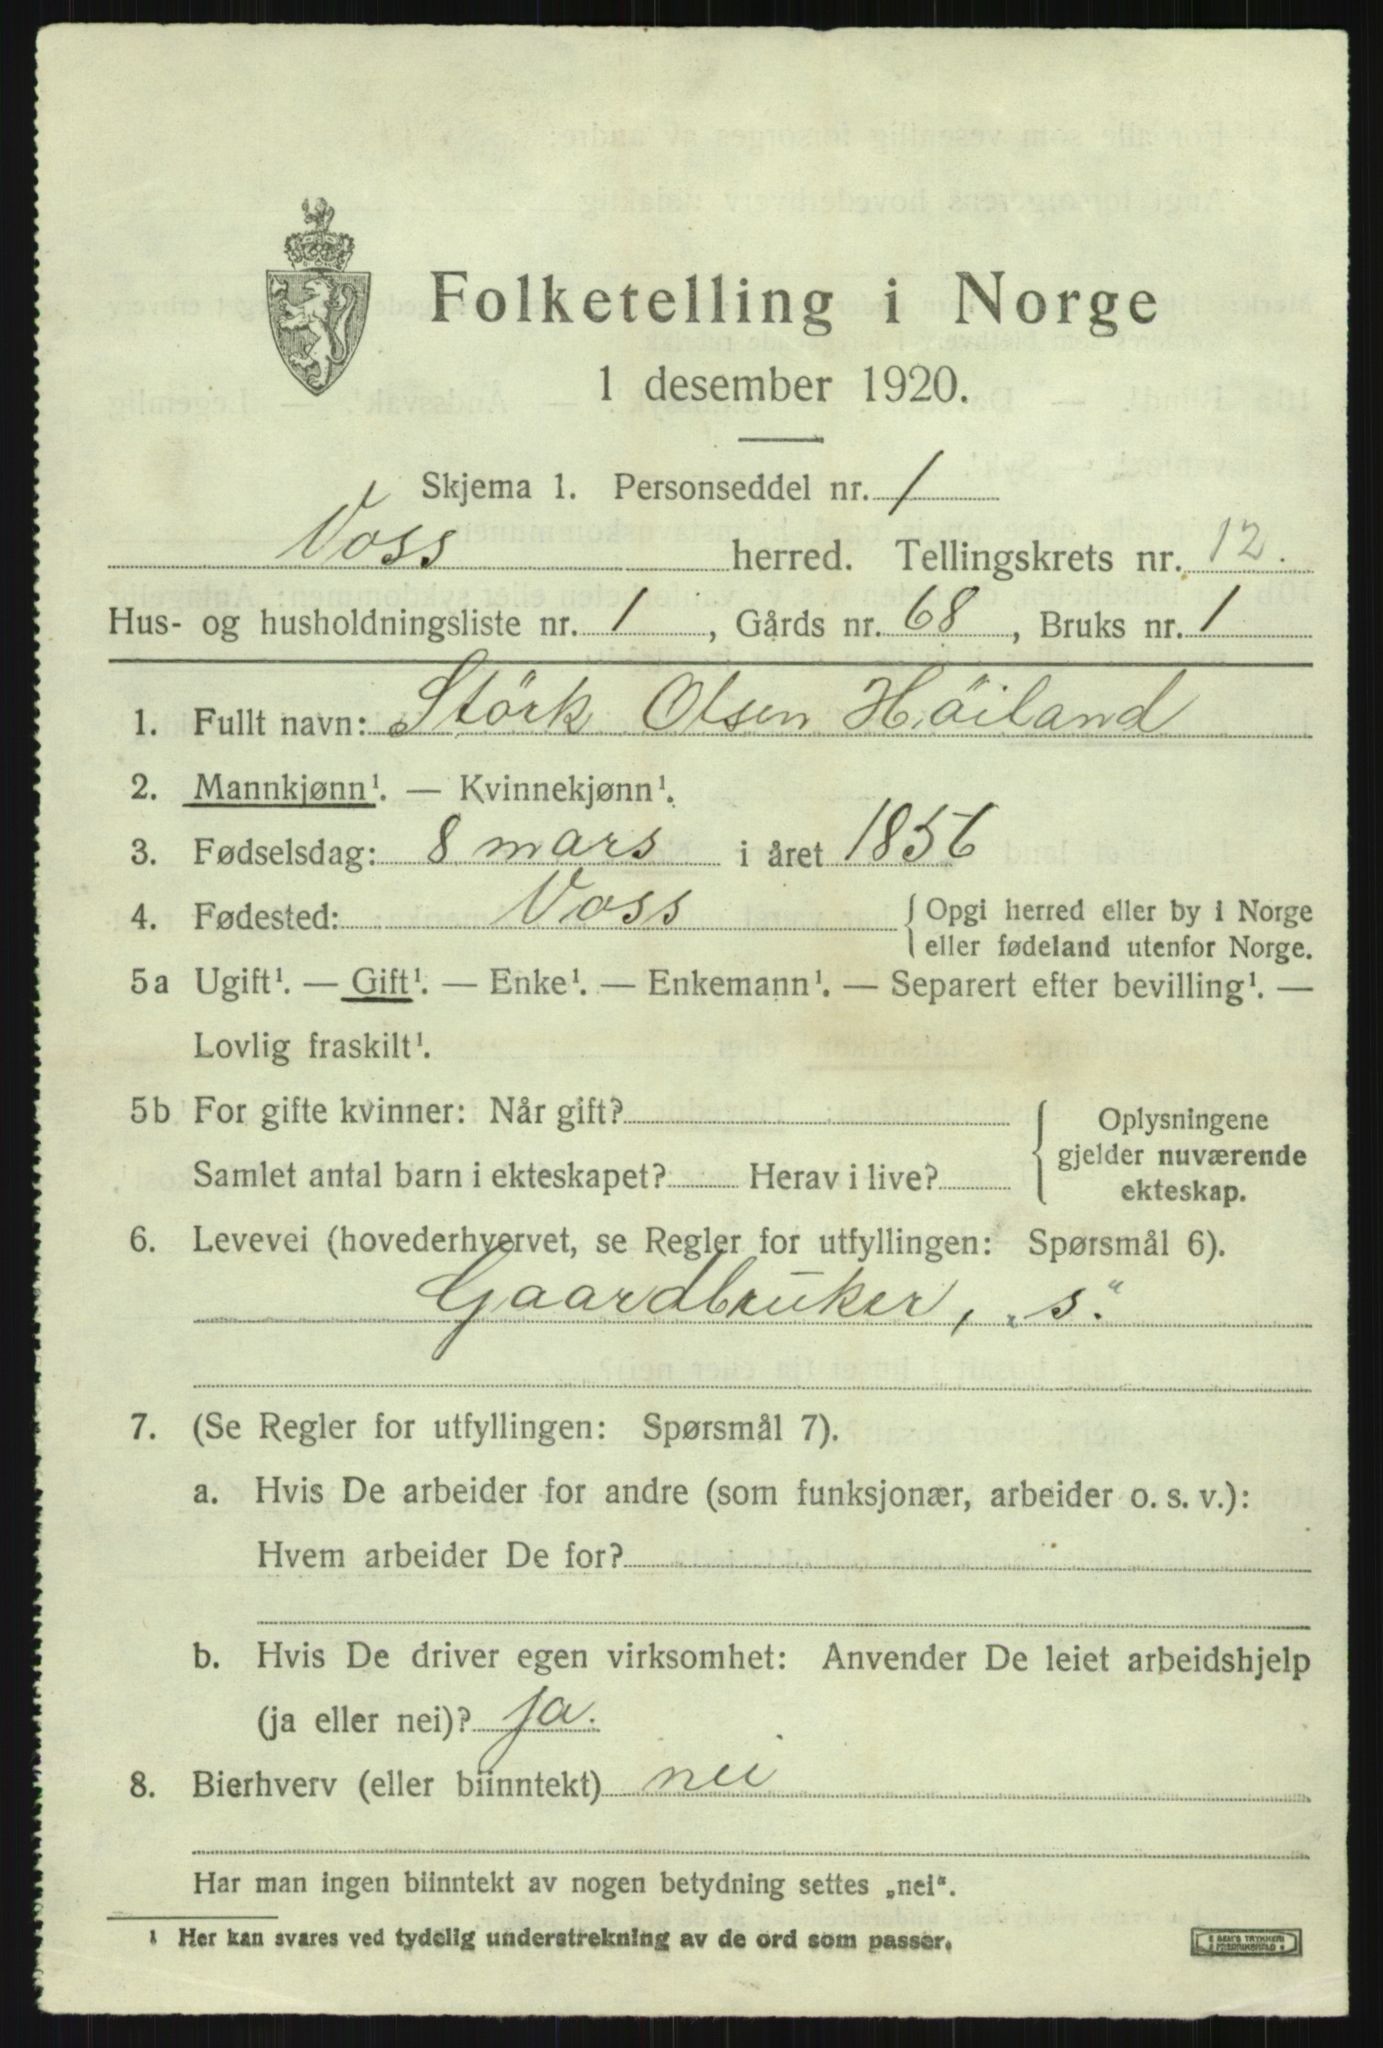 Folketelling i Norge
1 desember 1920.
Skjema 1. Personseddel nr. 1
Voss herred. Tellingskrets nr. 12.
Hus- og husholdningsliste nr. 1, Gårds nr. 68, Bruks nr. 1
1. Fullt navn: Störk Olsen Höiland
2. Mannkjønn¹. — Kvinnekjønn¹.
3. Fødselsdag: 8 mars i året 1856
4. Fødested: Voss { Opgi herred eller by i Norge
eller fødeland utenfor Norge.
5a Ugift¹. — Gift¹. — Enke¹. — Enkemann¹. — Separert efter bevilling¹. —
Lovlig fraskilt¹.
5b For gifte kvinner: Når gift?
Samlet antal barn i ekteskapet? Herav i live?
Oplysningene
gjelder nuværende
ekteskap.
6. Levevei (hovederhvervet, se Regler for utfyllingen: Spørsmål 6).
Gaardbruker, „s."
7. (Se Regler for utfyllingen: Spørsmål 7).
a. Hvis De arbeider for andre (som funksjonær, arbeider o. s. v.):
Hvem arbeider De for?
b. Hvis De driver egen virksomhet: Anvender De leiet arbeidshjelp
(ja eller nei)? ja.
8. Bierhverv (eller biinntekt) nei
Har man ingen biinntekt av nogen betydning settes „nei".
¹ Her kan svares ved tydelig understrekning av de ord som passer.